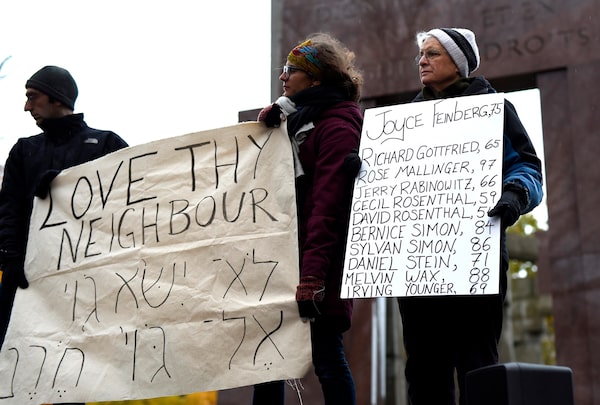 ET
DROITS
LOVE THY
NEIGHBOUR
לֹא־ יִשָּׂא גוֹי
אֶל־ גּוֹי חֶרֶב
JOYCE FEINBERG, 75
RICHARD GOTTFRIED, 65
ROSE MALLINGER, 97
JERRY RABINOWITZ, 66
CECIL ROSENTHAL, 59
DAVID ROSENTHAL,
BERNICE SIMON, 84
SYLVAN SIMON, 86
DANIEL STEIN, 71
MELVIN WAX, 88
IRVING YOUNGER, 69